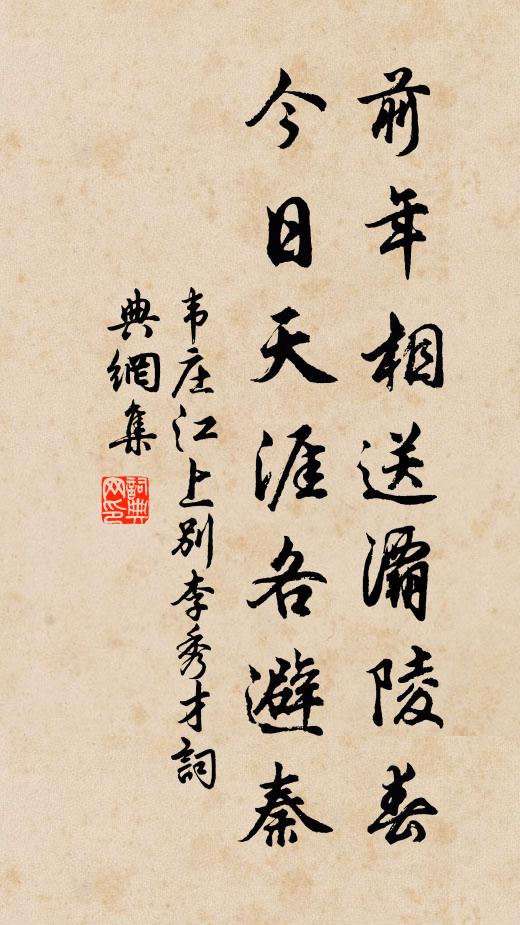 前年相送灞陵春
今日天涯各避秦
韦庄江上别李秀才詞
典網集
詞典网印